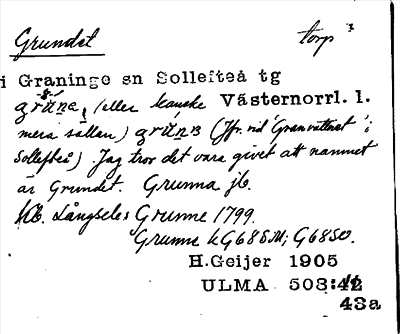 Grundet torp
i Graninge sn Sollefteå tg
(eller kanske Västernorrl. l.
mera sällan) (Jfr. vid Granvattnet i
Sollefteå). Jag tror det vara givet att namnet
är Grundet. Grunna jb.
Kb. Långsele Grunne 1799.
Grunne kG68SM; G68SV.
H.Geijer 1905
ULMA 508:
43a